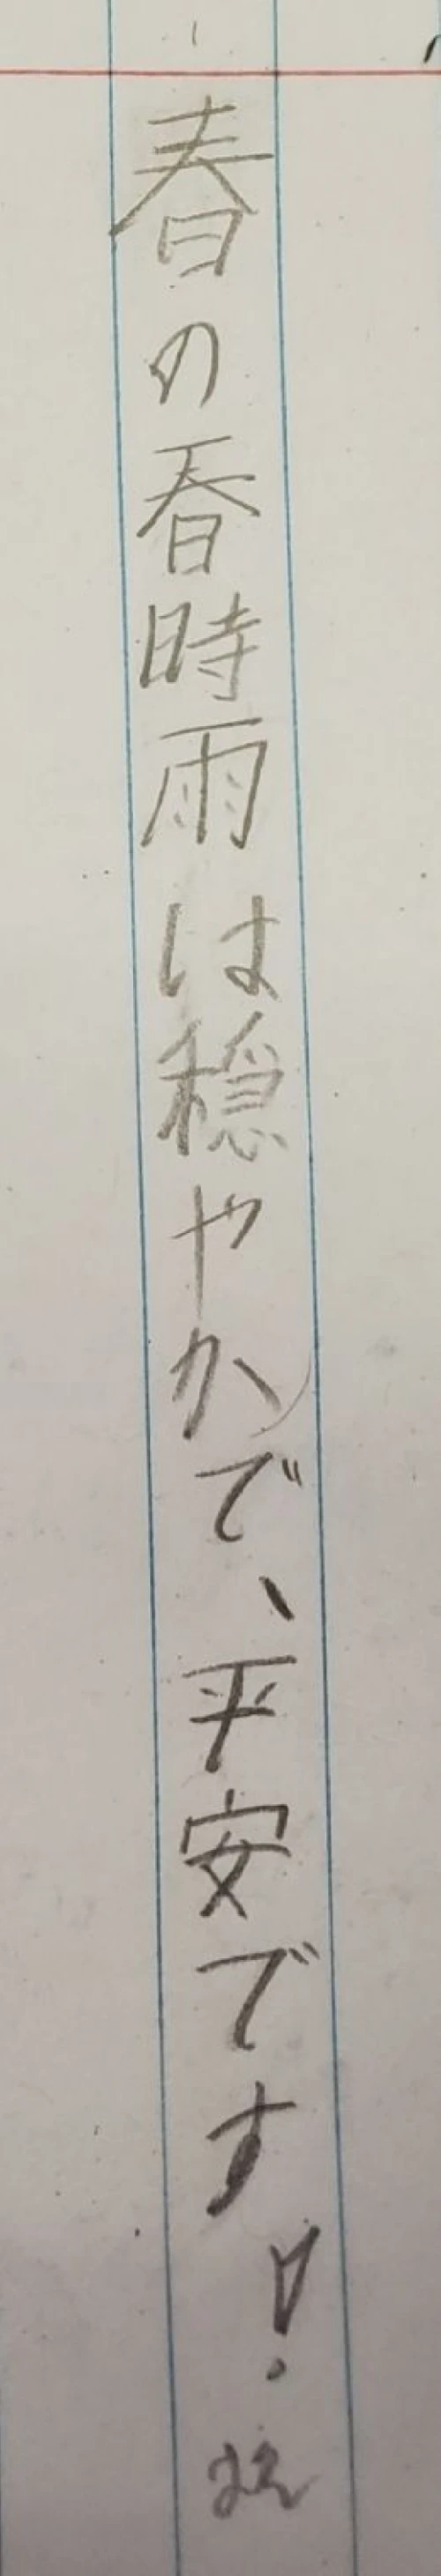 春の春時雨は穏やかで、平安です!